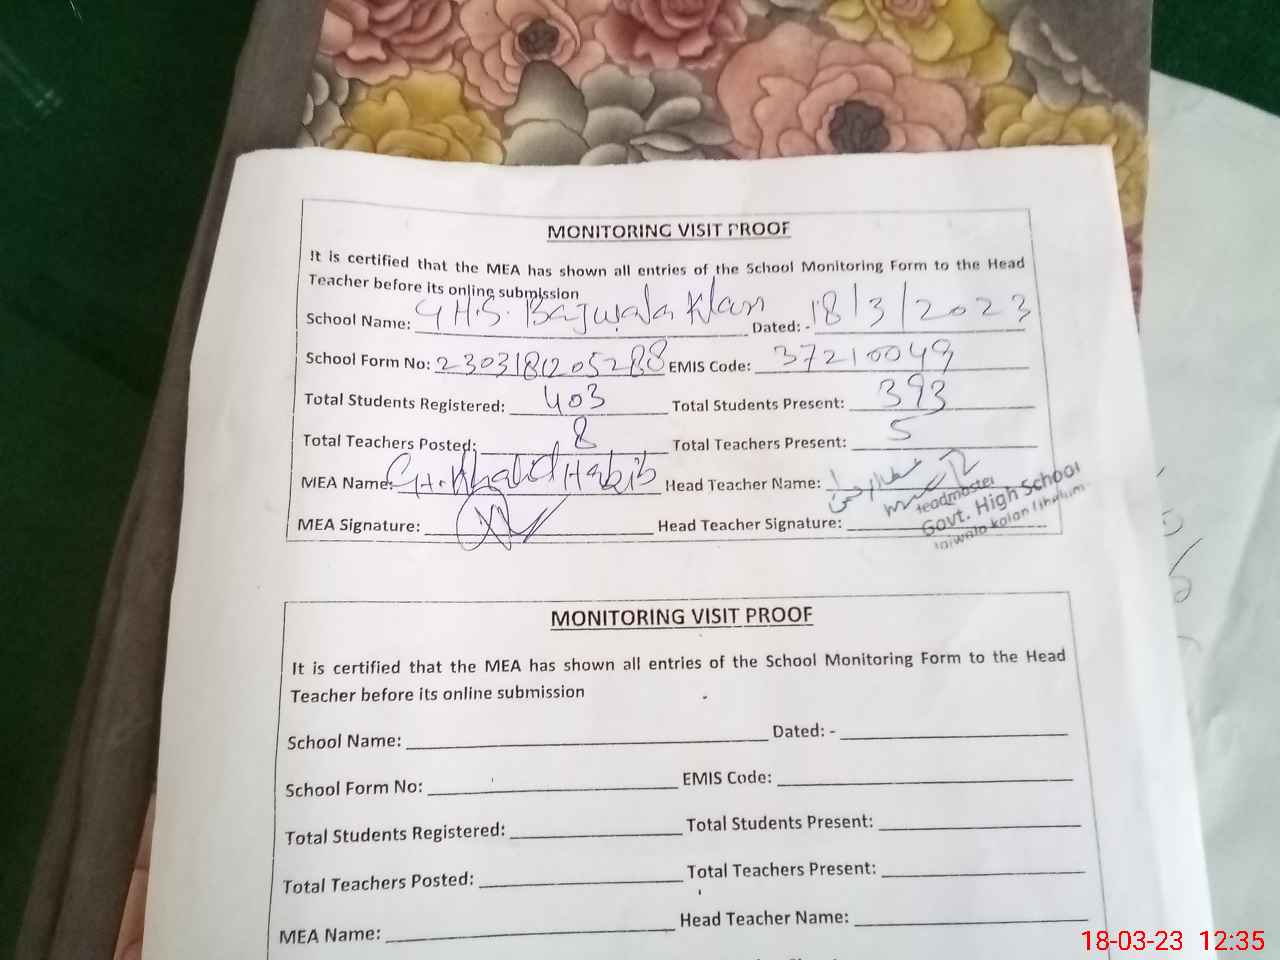 MONITORING VISIT PROOF
It is certified that the MEA has shown all entries of the School Monitoring Form to the Head
Teacher before its online submission
School Name: GHS. Bajwala Klan Dated: - 18/3/2023
School Form No: 230318120528 EMIS Code: 37210049
Total Students Registered: 403 Total Students Present: 393
Total Teachers Posted: 8 Total Teachers Present: 5
MEA Name: CH. Khalid Habib Head Teacher Name:
MEA Signature: Head Teacher Signature:
Headmaster
Govt. High School
MONITORING VISIT PROOF
It is certified that the MEA has shown all entries of the School Monitoring Form to the Head
Teacher before its online submission
School Name: Dated: -
School Form No: EMIS Code:
Total Students Registered: Total Students Present:
Total Teachers Posted: Total Teachers Present:
MEA Name: Head Teacher Name:
18-03-23 12:35